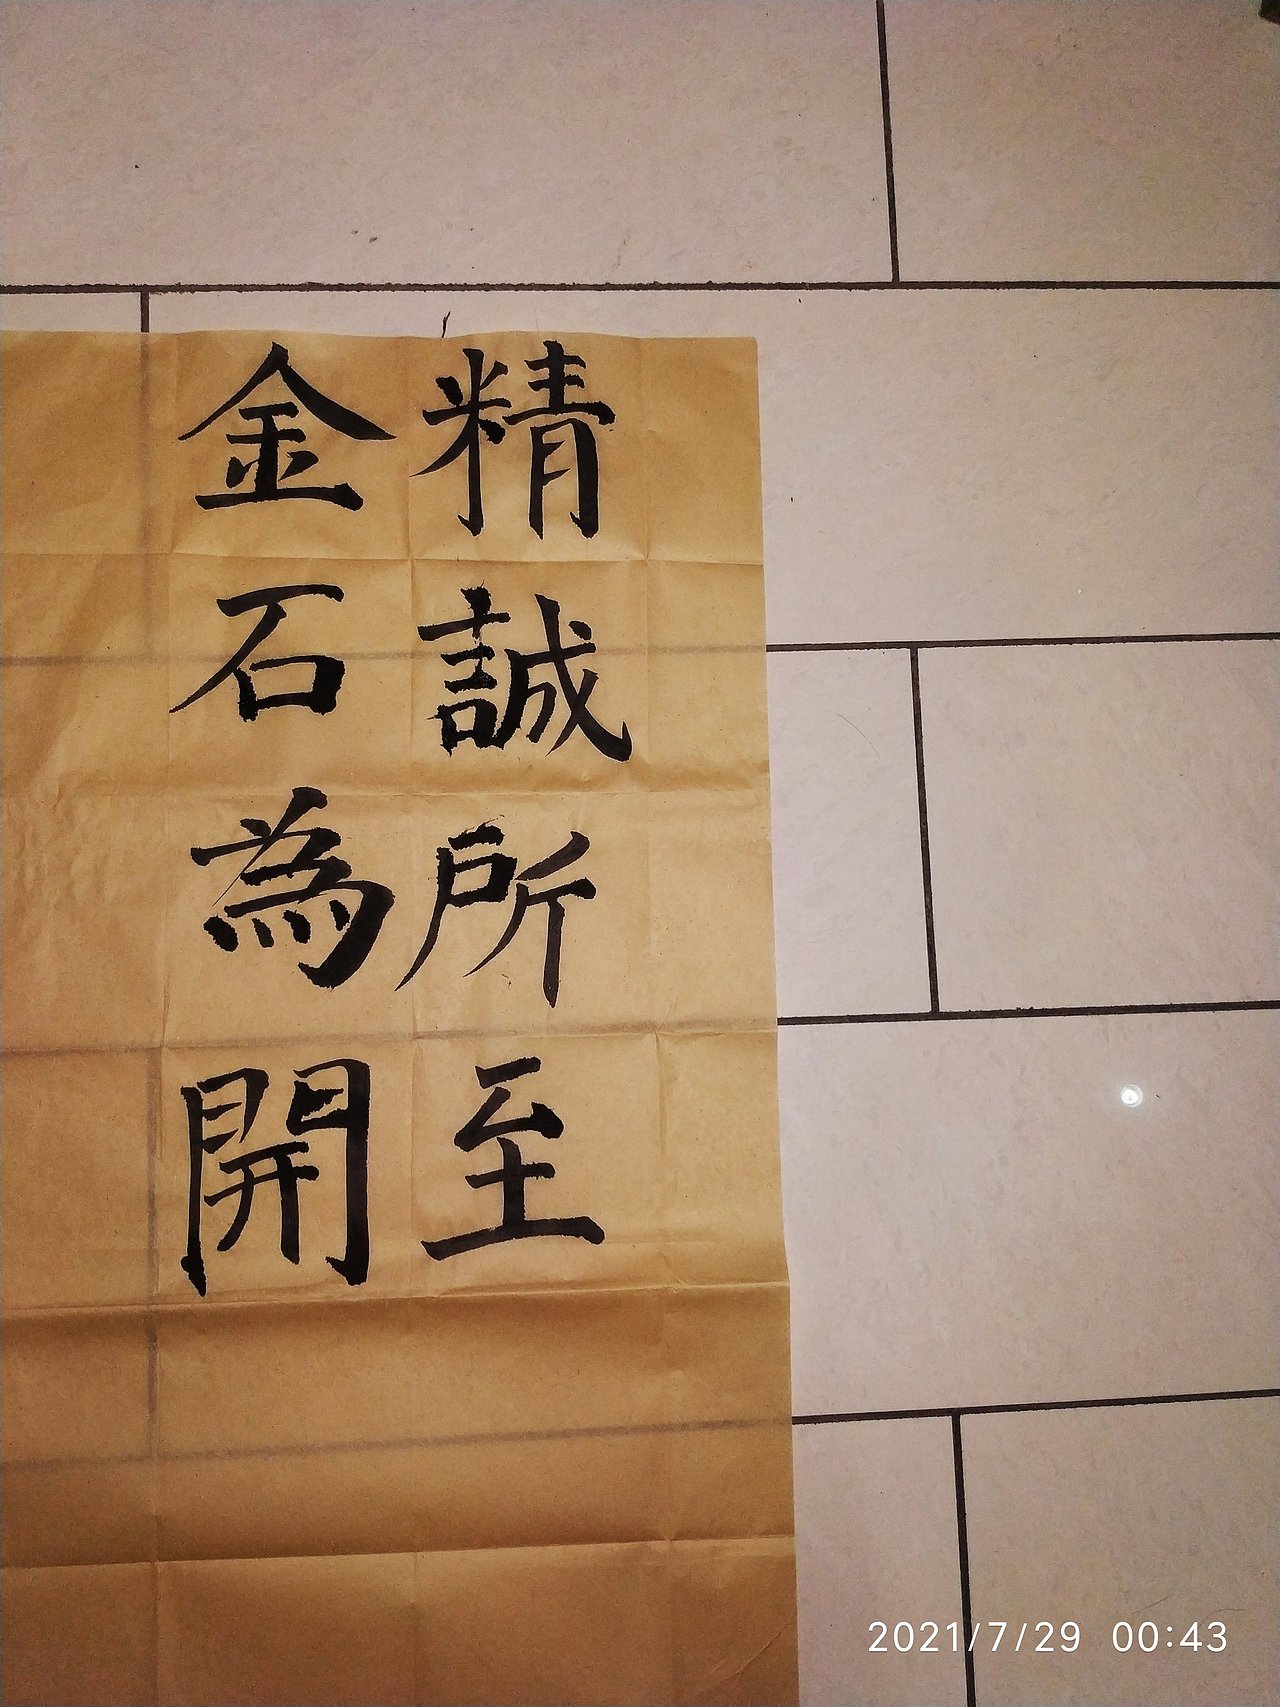 精誠所至
金石為開
2021/7/29 00:43